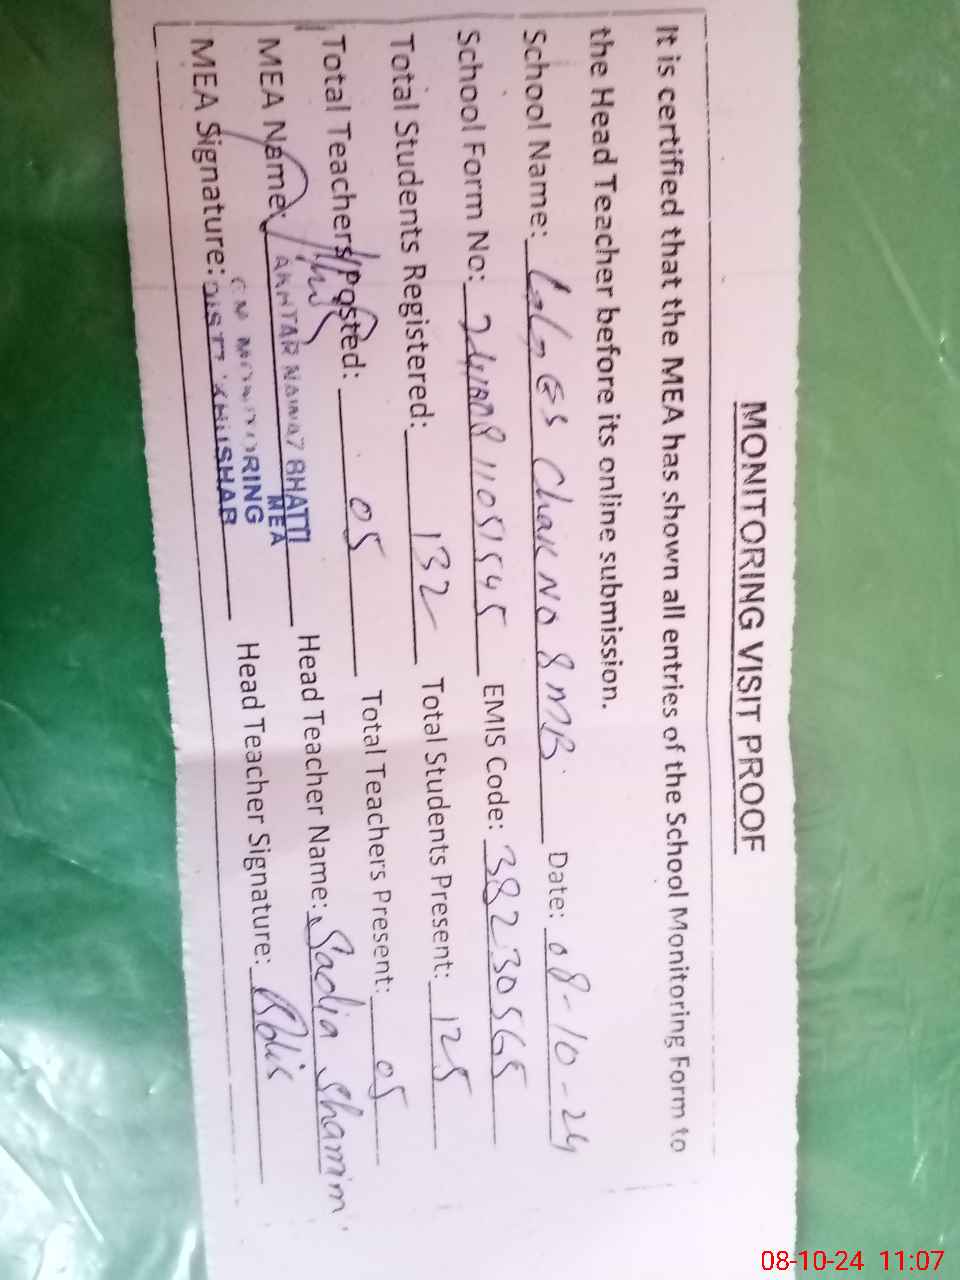 MONITORING VISIT PROOF
It is certified that the MEA has shown all entries of the School Monitoring Form to
the Head Teacher before its online submission.
School Name: GS Chak No 8 MB Date: 08-10-24
School Form No: EMIS Code: 38230565
Total Students Registered: 132 Total Students Present: 125
Total Teachers Posted: 05 Total Teachers Present: 05
MEA Name: AKHTAR NAWAZ BHATTI Head Teacher Name: Sadia Shamim
MEA
MEA Signature: Head Teacher Signature:
CM MONITORING
DISTT KHUSHAB
08-10-24 11:07